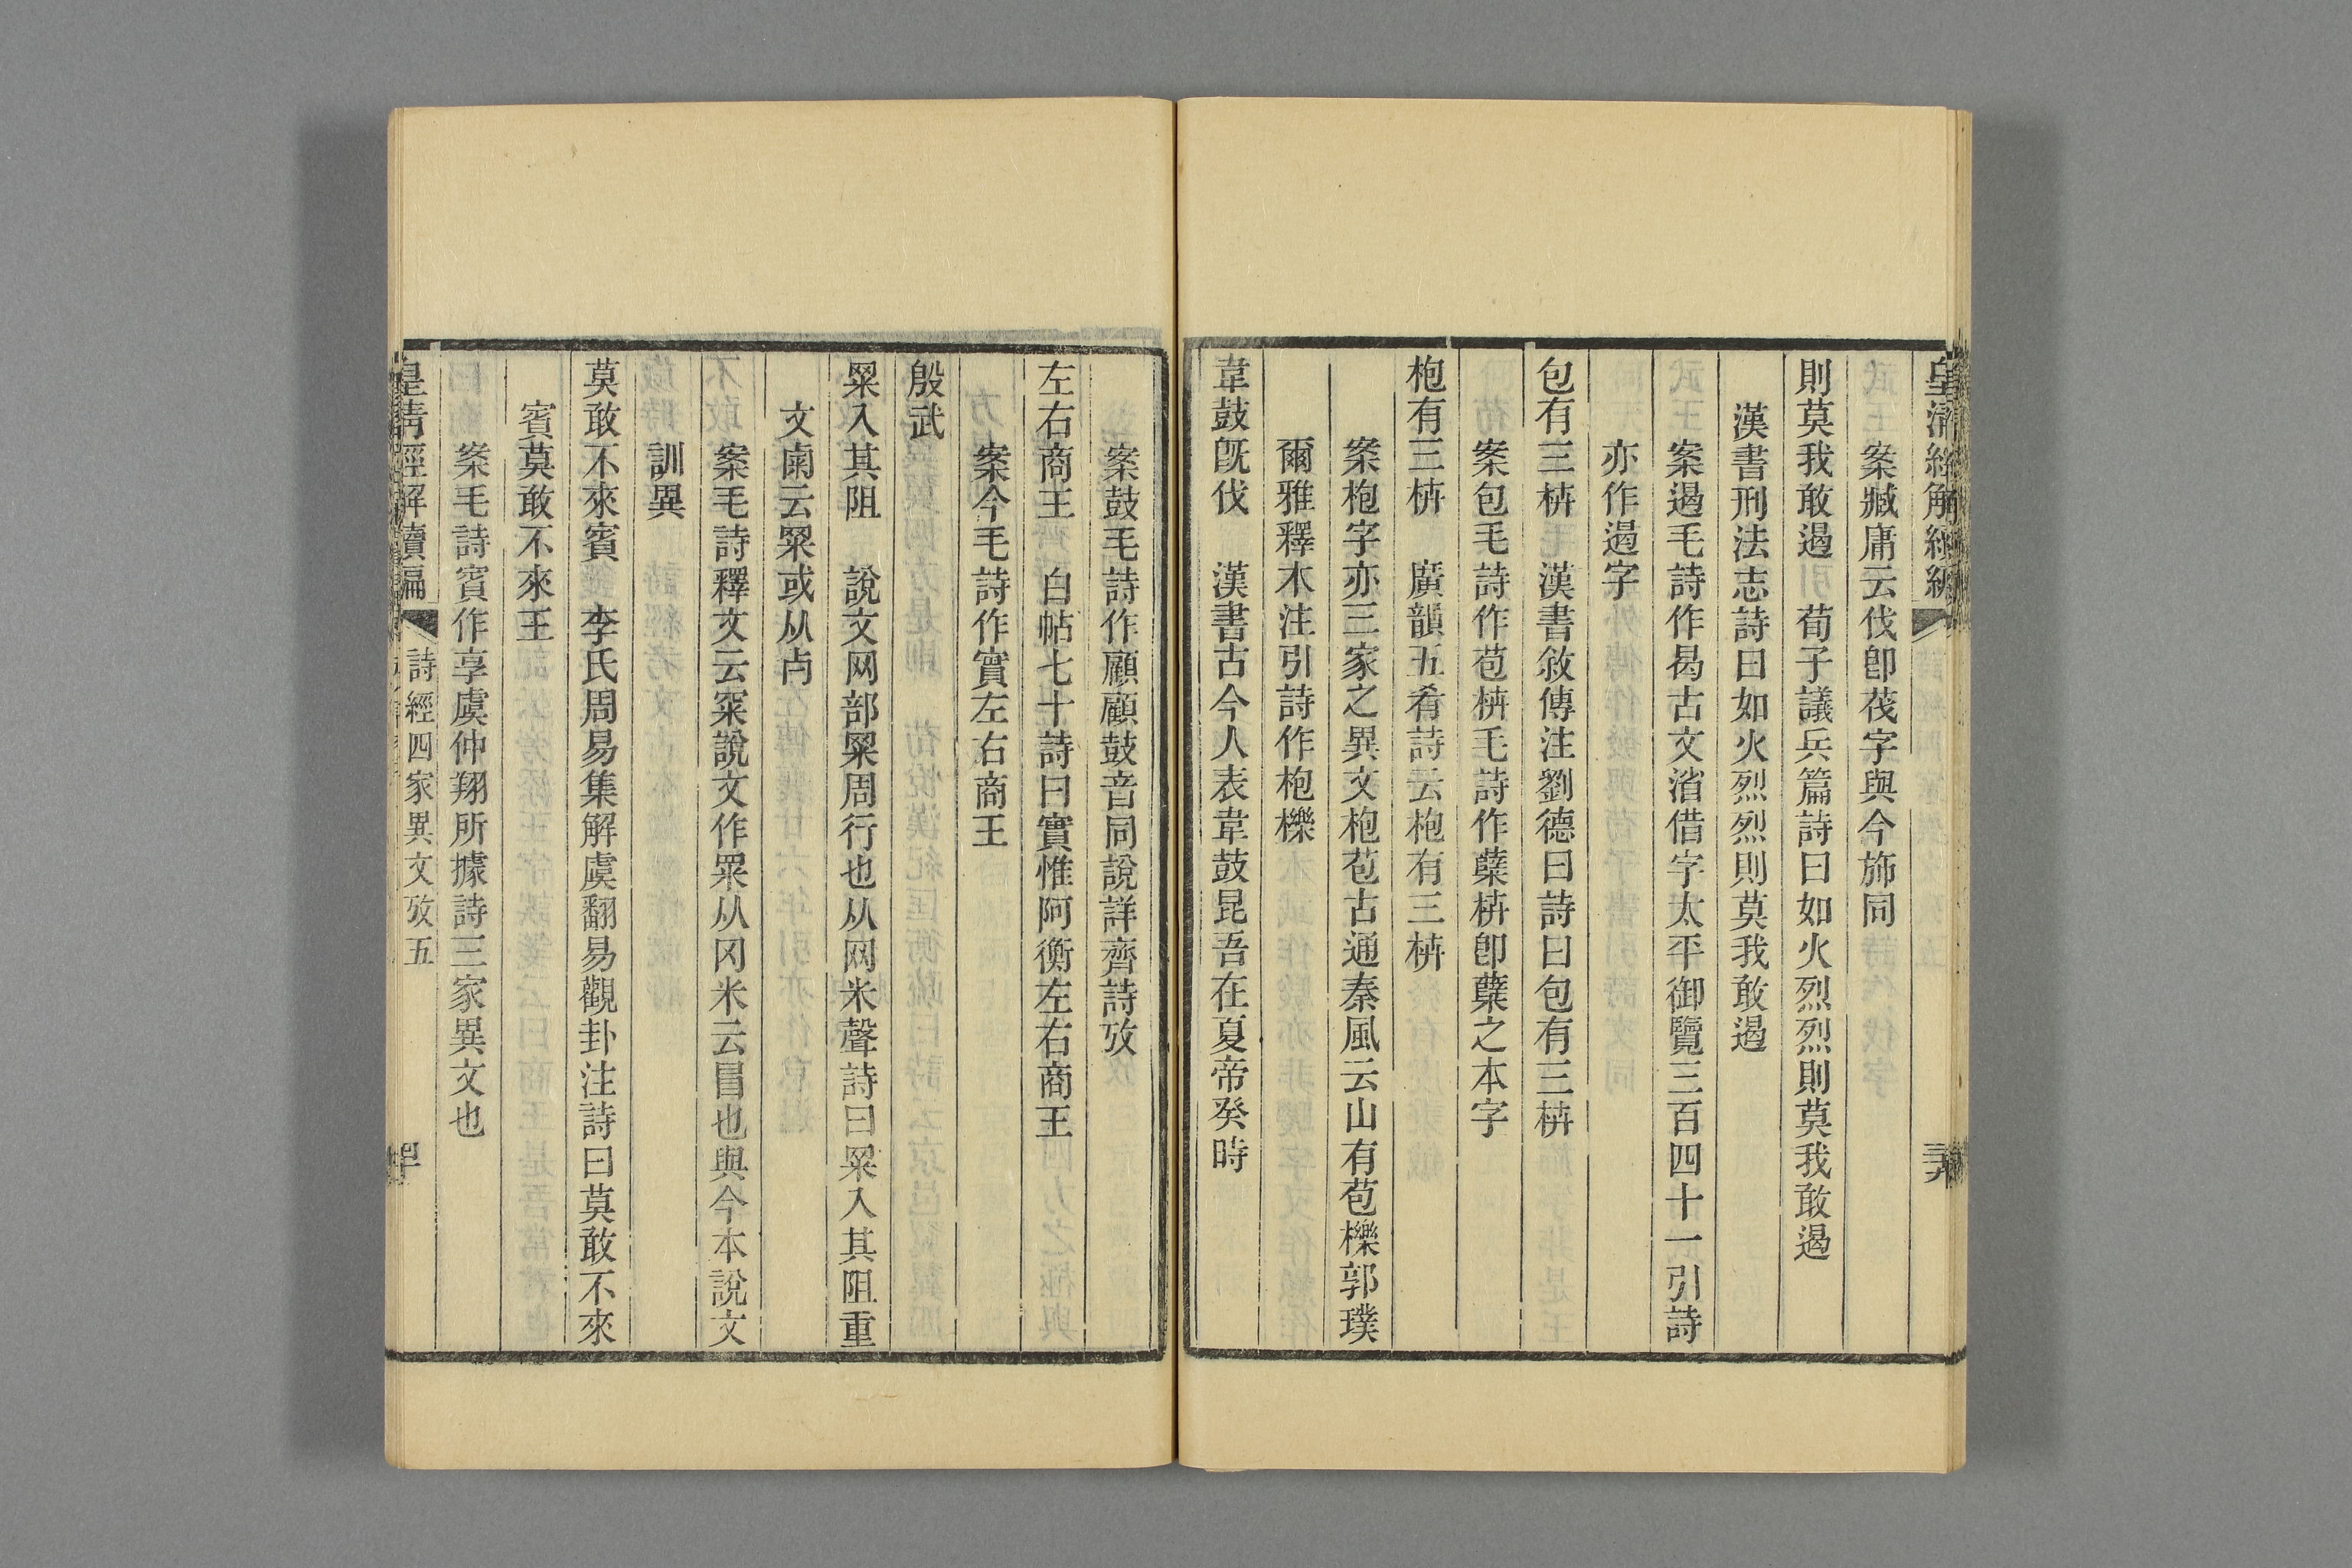 案臧庸云伐卽茷字與今斾同
則莫我敢遏　荀子議兵篇詩曰如火烈烈則莫我敢遏
漢書刑法志詩曰如火烈烈則莫我敢遏
案遏毛詩作曷古文渻借字太平御覽三百四十一引詩
亦作遏字
包有三枿　漢書敘傳注劉德曰詩曰包有三枿
案包毛詩作苞枿毛詩作蘖枿卽蘖之本字
枹有三枿　廣韻五肴詩云枹有三枿
案枹字亦三家之異文枹苞古通秦風云山有苞櫟郭璞
爾雅釋木注引詩作枹櫟
韋鼓旣伐　漢書古今人表韋鼓昆吾在夏帝癸時
案鼓毛詩作顧顧鼓音同說詳齊詩攷
左右商王　白帖七十詩曰實惟阿衡左右商王
案今毛詩作實左右商王
殷武
冞入其阻　說文网部冞周行也从网米聲詩曰冞入其阻重
文𠧪云冞或从占
案毛詩釋文云冞說文作冞从冈米云冒也與今本說文
訓異
莫敢不來賓　李氏周易集解虞翻易觀卦注詩曰莫敢不來
賓莫敢不來王
案毛詩賓作享虞仲翔所據詩三家異文也
皇清經解續編
詩經四家異文攷五